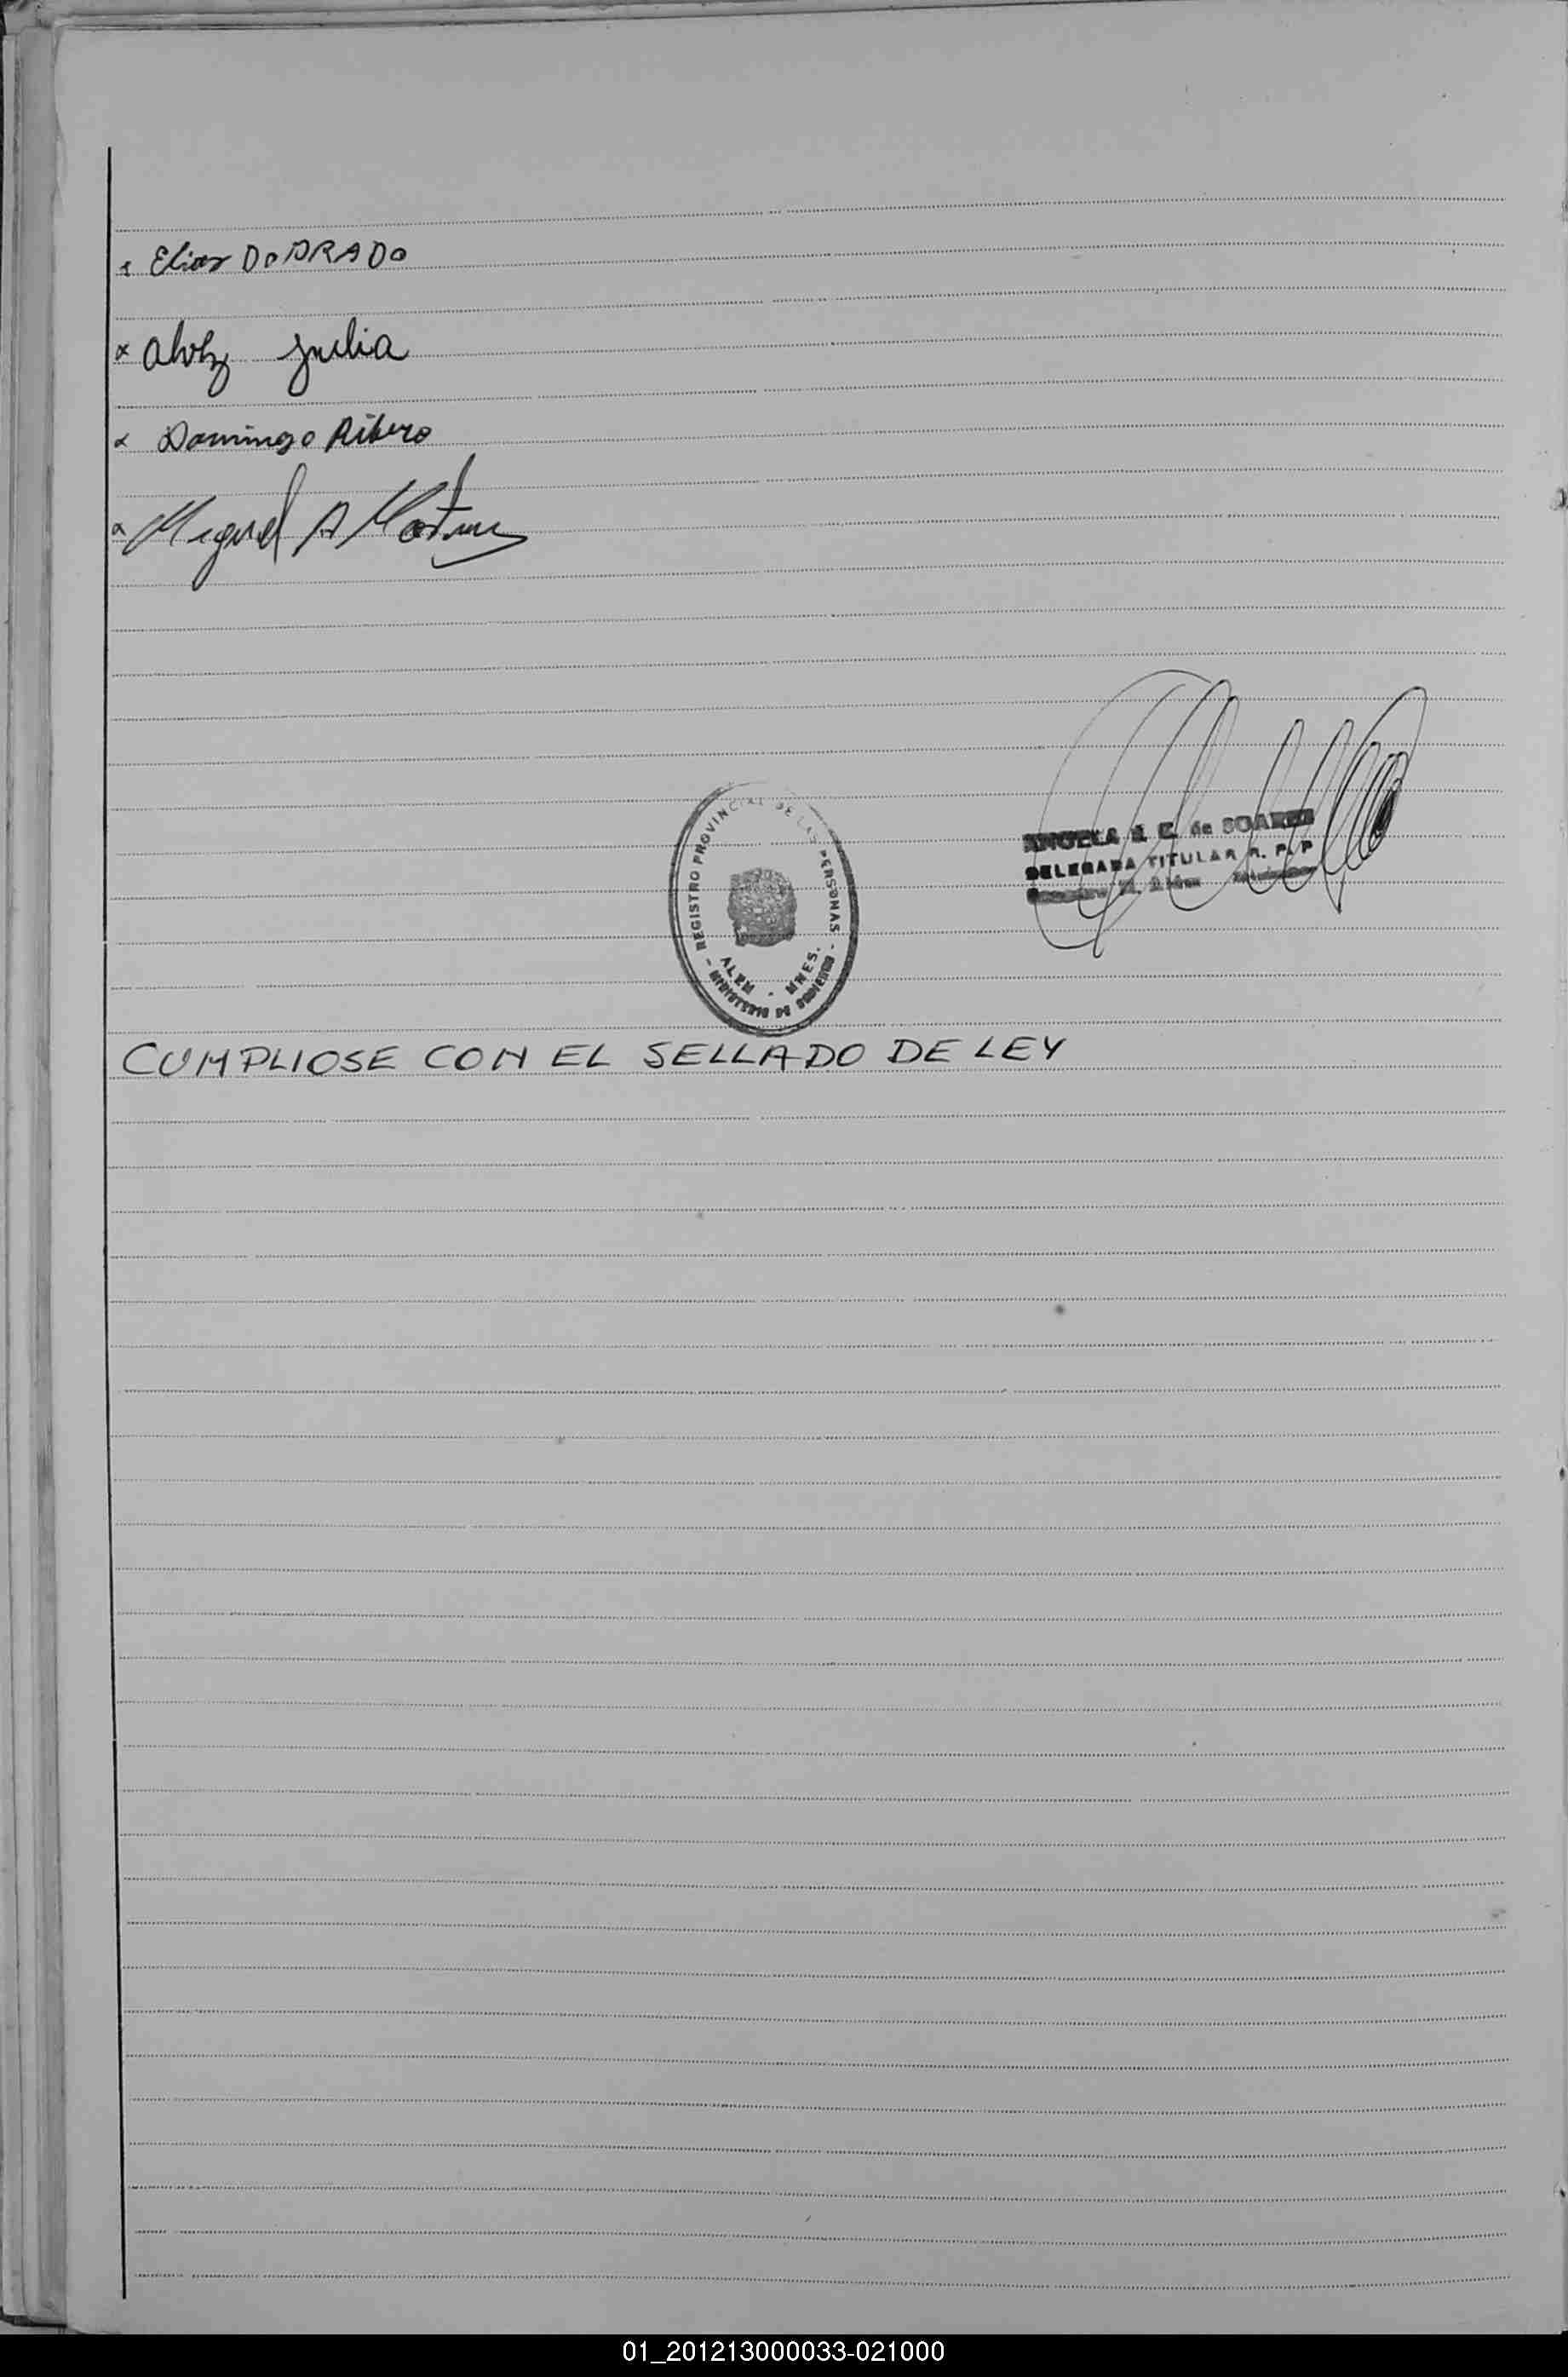 x Elias Do PRADO
x Alvez Julia
x Domingo Ribero
x Miguel A Martinez
- REGISTRO PROVINCIAL DE LAS PERSONAS -
ALEM - MNES.
MINISTERIO DE GOBIERNO
ANGELA de SOARES
DELEGADA TITULAR R. P. P
CUMPLIOSE CON EL SELLADO DE LEY
01_201213000033-021000